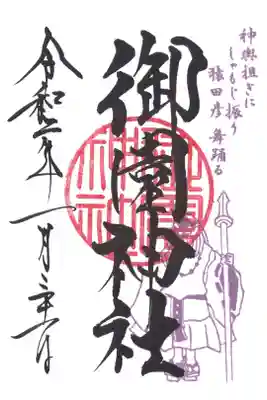 神輿担ぎに
しゃもじ振り
猿田彦舞踊る
御園神社
令和二年一月二十六日